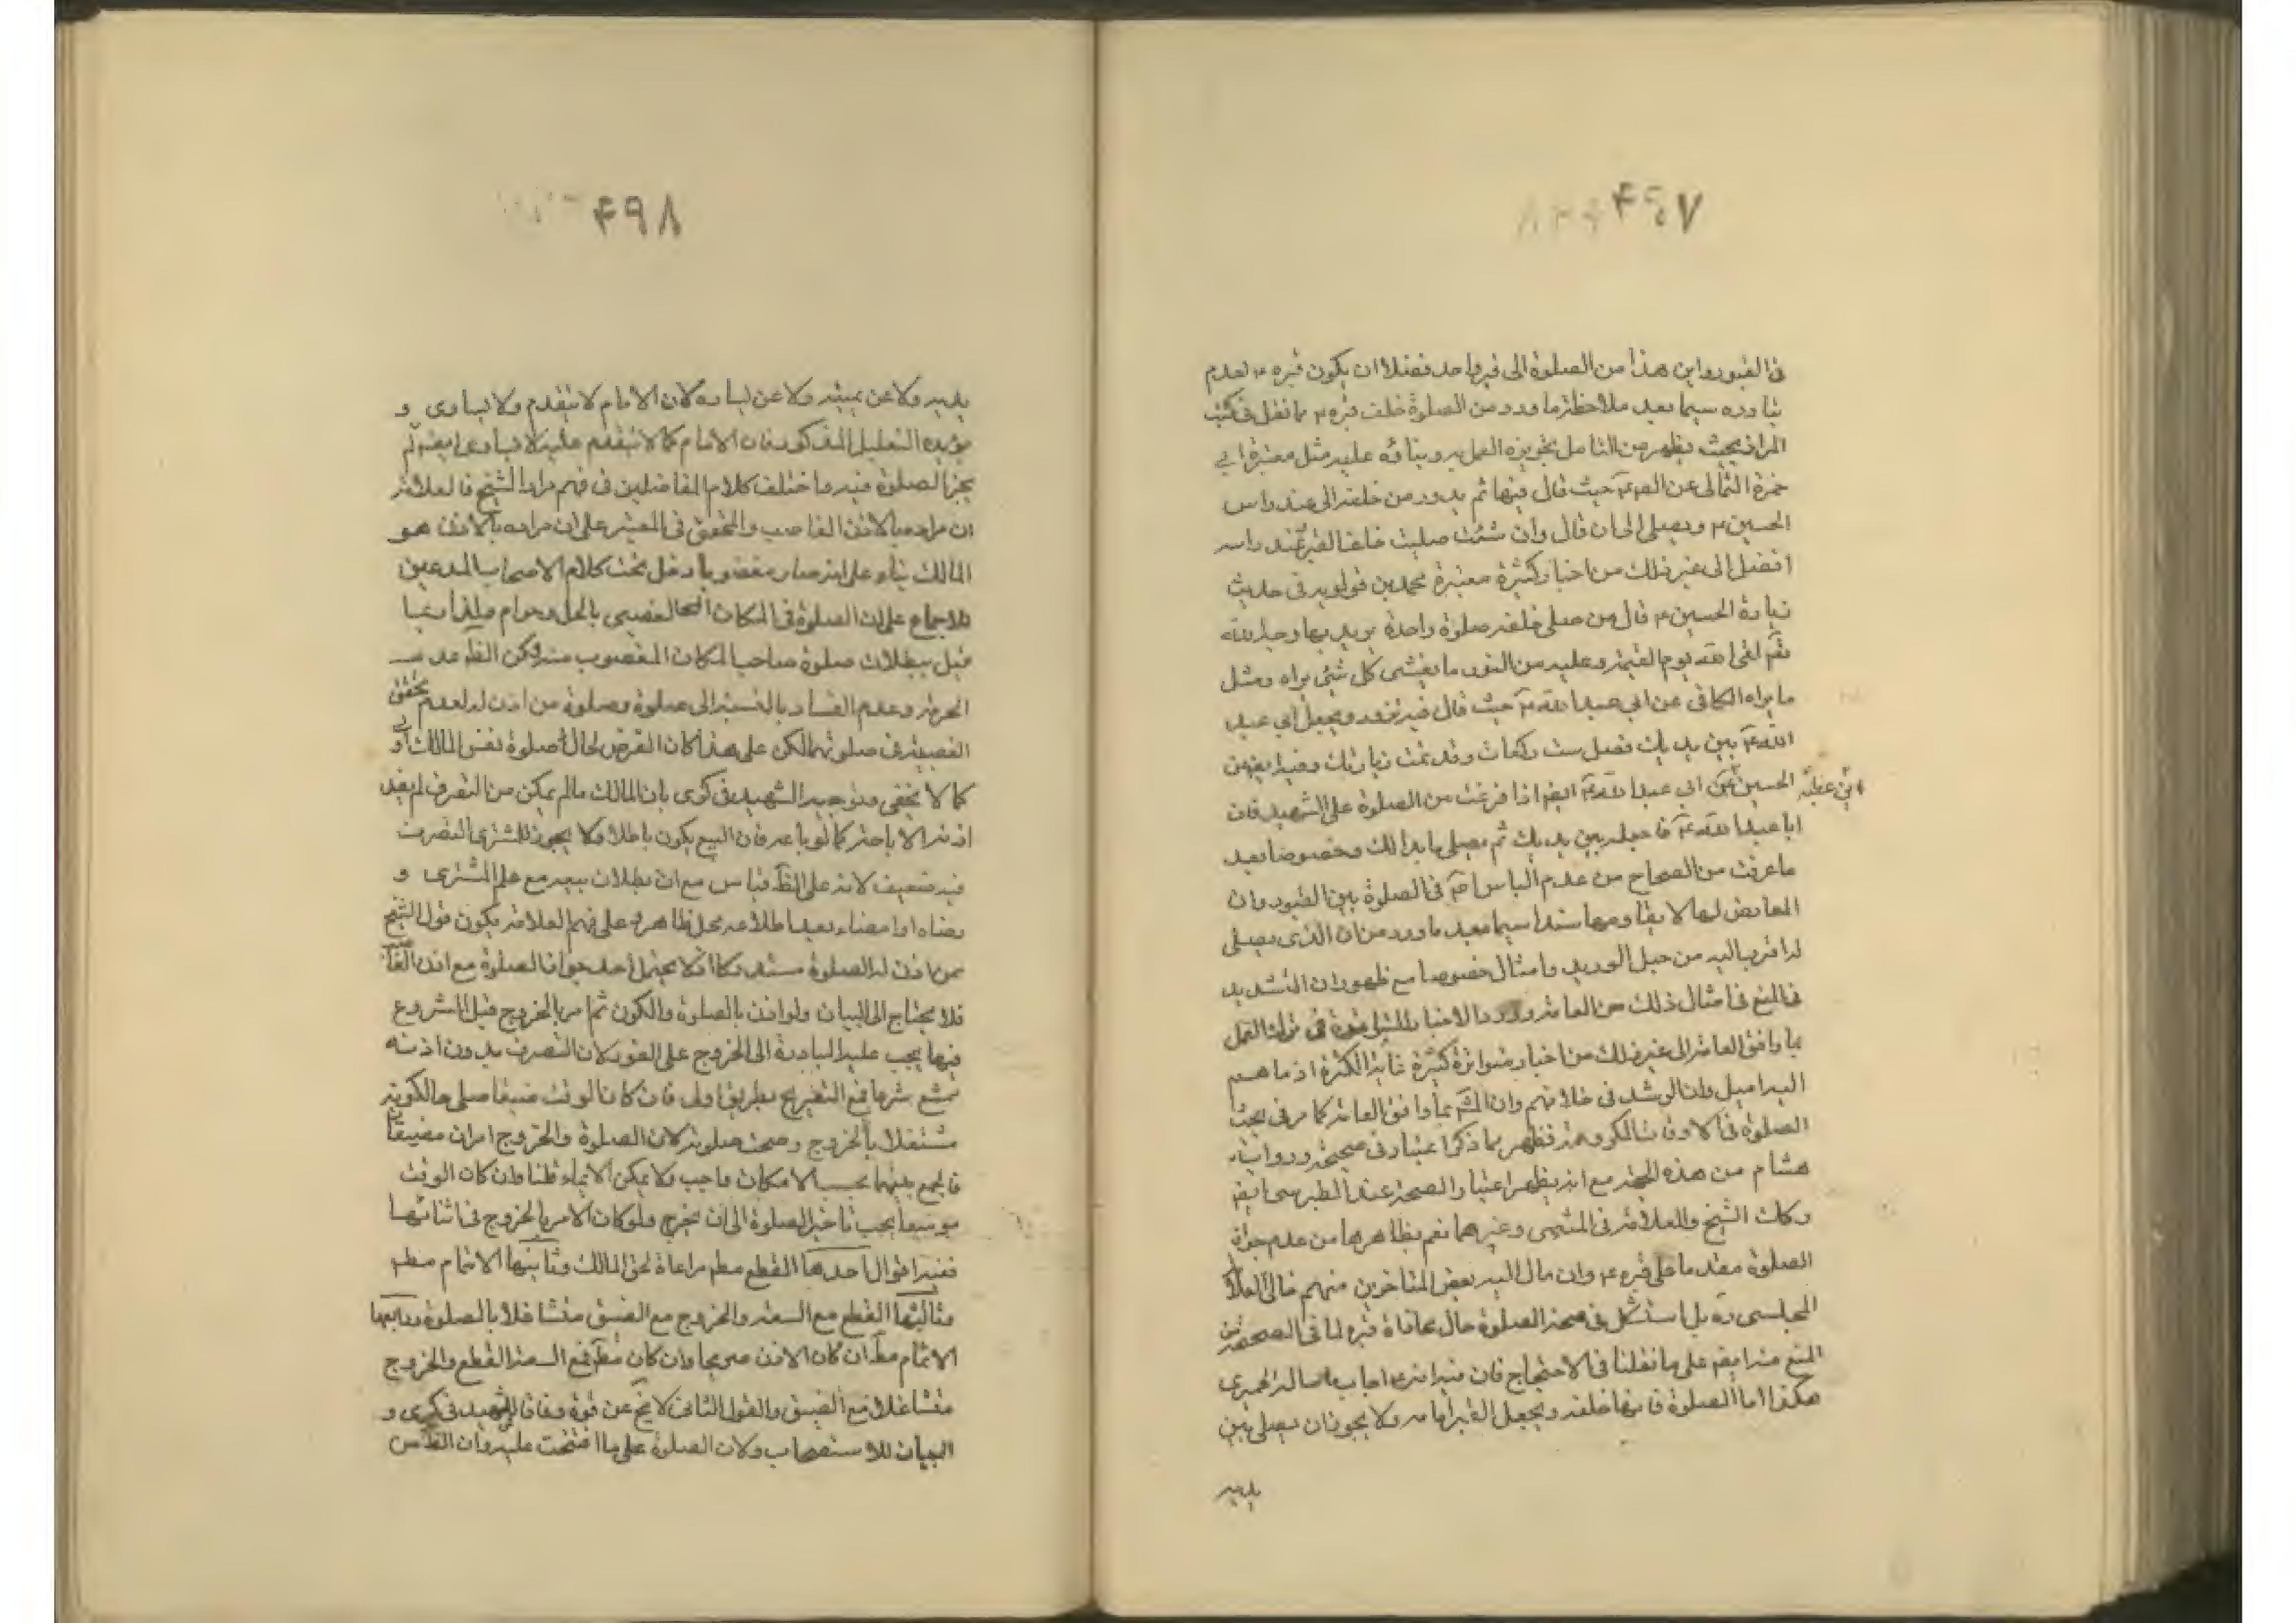 ۴۹۷
فى القبور واين هذا من الصلوة الى قبر واحد فضلا ان يكون قبره ع لعدم
سيما بعد ملاحظة ما ورد من الصلوة خلف قبره ع مما نقل فى كتب
المزار بحيث يظهر من التامل تجويزه العمل به وبنائه عليه مثل معتبرة ابى
حمزة الثمالى عن الص ع حيث قال فيها ثم يدور من خلفه الى عند راس
الحسين ع ويصلى الى ان قال وان شئت صليت خلف القبر وعند راسه
افضل الى غير ذلك من اخبار كثيرة معتبرة محمد بن قولويه فى حديث
زيارة الحسين ع قال من صلى خلفه صلوة واحدة يريد بها وجه الله
تعم لقى الله يوم القيمة وعليه من النور ما يغشى كل شئ يراه ومثل
ما يراه الكافى عن ابى عبد الله ع حيث قال فيه تزور ويجعل ابى عبد
الله ع بين يديك فصل ست ركعات وقد تمت زيارتك وفيه ايضم عن
الحسين بن عطية عن ابى عبد الله ع ايضم اذا فرغت من الصلوة على الشهيد فان
ابا عبد الله ع فاجعله بين يديك ثم يصلى ما بدا لك وخصوصا بعد
ما عرفت من الصحاح من عدم الباس فى الصلوة بين القبور وان
المعارض لها لا يقاومها سندا سيما بعد ما ورد من ان الذى يصلى
له اقرب اليه من حبل الوريد وامثال خصوصا مع ظهور ان التشديد
فى المنع فى امثال ذلك من العامة وورد الاخبار المتواترة فى ترك العمل
بما وافق العامة الى غير ذلك من اخبار متواترة كثيرة غاية الكثرة اذ ما هم
اليه اميل وان الرشد فى خلافهم وان بما وافق العامة كما مر فى بحث
الصلوة فى الاوقات المكروهة فظهر بما ذكر اعتبار فى صحيحة ورواية
هشام من هذه الجهة مع انه يظهر اعتبار الصحة عند الطبرسى ايضم
وكك الشيخ والعلامة فى المنتهى وغيرهما نعم بظاهرها من عدم جواز
الصلوة مقدما على قبره ع وان مال اليه بعض المتاخرين منهم خالى العلامة
المجلسى ره بل استشكل فى صحة الصلوة حال محاذاة قبره لما فى الصحيحة من
المنع منه ايضم على ما نقلنا فى الاحتجاج فان فيه انه ع اجاب سالة الحميرى
هكذا اما الصلوة فانها خلفه ويجعل القبر امامه ولا يجوز ان يصلى بين
يديه
۴۹۸
يديه ولا عن يمينه ولا عن يساره لان الامام لا يتقدم ولا يساوى و
يؤيده التعليل المذكور فان الامام كما لا يتقدم عليه لا يساوى ايضم لم
يجز الصلوة فيه واختلف كلام الفاضلين فى فهم مراد الشيخ فالعلامة
ان مراده بالاذن الغاصب والمحقق فى المعتبر على ان مراده بالاذن هو
المالك بناء على انه صار مغضوبا دخل تحت كلام الاصحاب المدعين
للاجماع على ان الصلوة فى المكان الغصبى بالحل وحرام
قيل ببطلان صلوة صاحب المكان المغصوب منه ولكن الظم عدم
الحرمة وعدم الفساد بالنسبة الى صلوة وصلوة من اذن له لعدم تحقق
الغصبية فى صلوتهما لكن على هذا كان الفرض لحال صلوة نفس المالك اولى
كما لا يخفى وتوجيه الشهيد فى كرى بان المالك ما لم يمكن من التصرف لم يفد
اذنه الاباحة كما لو باعه فان البيع يكون باطلا ولا يجوز للمشترى التصرف
فيه ضعيف لانه على الظم قياس مع ان بطلان بيعه مع علم المشترى و
رضاه او امضاء بعد اطلاعه محل ظاهر وعلى فهم العلامة يكون قول الشيخ
بمن اذن له الصلوة لا يحتمل احد جواز الصلوة مع اذن الغاصب
فلا يحتاج الى البيان ولو اذن بالصلوة والكون ثم امر بالخروج قبل الشروع
فيها يجب عليه المبادرة الى الخروج على الفور لان التصرف بدون اذنه
ممتنع شرعا فمع التصريح بطريق اولى فان كان الوقت ضيقا صلى حالكونه
مشتغلا بالخروج وصحت صلوته لان الصلوة والخروج امران مضيقان
فالجمع بينهما بحسب الامكان واجب ولا يمكن الايماء قلنا وان كان الوقت
موسعا يجب تاخير الصلوة الى ان يخرج ولو كان الامر بالخروج فى اثنائها
ففيه اقوال احدها القطع مطم مراعاة لحق المالك وثانيها الاتمام مطم
وثالثها القطع مع السعة والخروج مع الضيق متشاغلا بالصلوة ورابعها
الاتمام مطم ان كان الاذن صريحا وان كان مطم فمع السعة القطع والخروج
متشاغلا مع الضيق والقول الثانى لا يخ عن قوة وفاقا للشهيد فى كرى و
البيان للاستصحاب ولان الصلوة على ما افتتحت عليه وان الناس